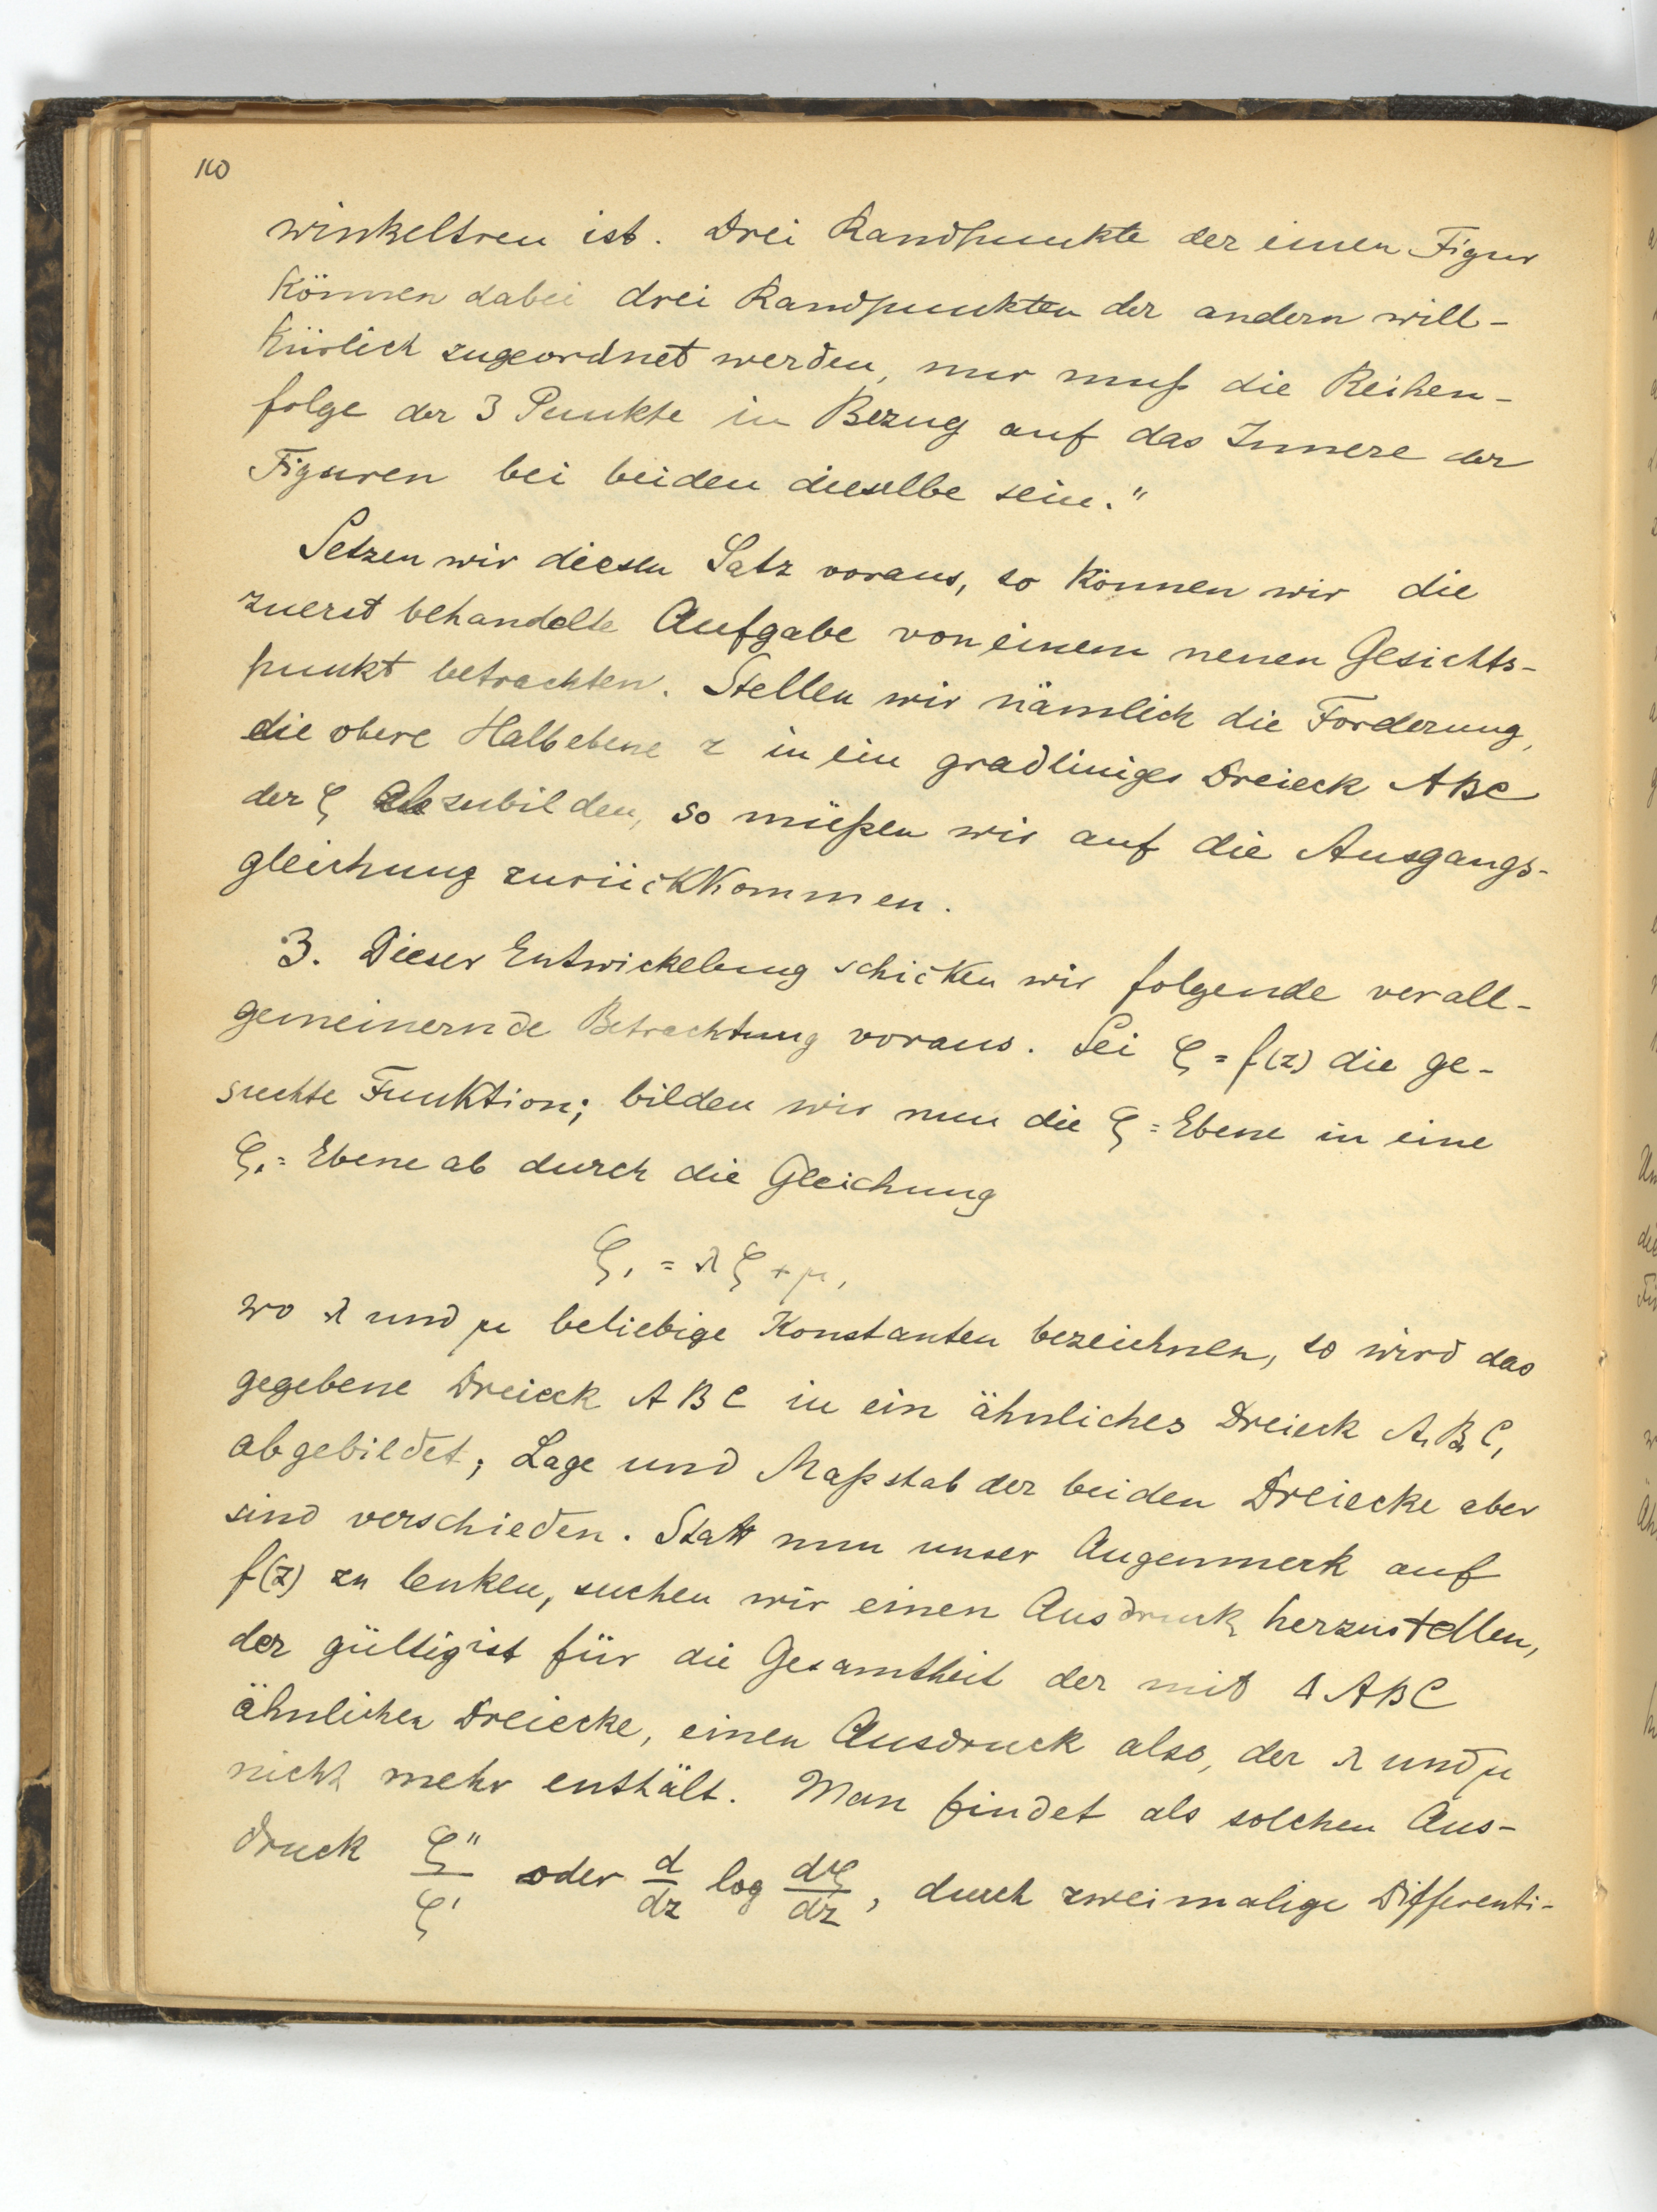 110
winkeltreu ist. Drei Randpunkte der einen Figur
können dabei drei Randpunkten der andern will-
kürlich zugeordnet werden, nur muß die Reihen-
folge der 3 Punkte in Bezug auf das Innere der
Figuren bei beiden dieselbe sein."
Setzen wir diesen Satz voraus, so können wir die
zuerst behandelte Aufgabe von einem neuen Gesichts-
punkt betrachten. Stellen wir nämlich die Forderung,
die obere Halbebene z in ein gradliniges Dreieck ABC
der ζ abzubilden, so müßen wir auf die Ausgangs-
gleichung zurückkommen.
3. Dieser Entwickelung schicken wir folgende verall-
gemeinernde Betrachtung voraus. Sei ζ = f(z) die ge-
suchte Funktion; bilden wir nun die ζ=Ebene in eine
ζ₁=Ebene ab durch die Gleichung
ζ₁ = λζ + μ,
wo λ und μ beliebige Konstanten bezeichnen, so wird das
gegebene Dreieck ABC in ein ähnliches Dreieck A₁B₁C₁
abgebildet; Lage und Maßstab der beiden Dreiecke aber
sind verschieden. Statt nun unser Augenmerk auf
f(z) zu lenken, suchen wir einen Ausdruck herzustellen,
der gültig ist für die Gesamtheit der mit Δ ABC
ähnlichen Dreiecke, einen Ausdruck also, der λ und μ
nicht mehr enthält. Man findet als solchen Aus-
druck ζ''/ζ' oder d/dz log dζ/dz, durch zweimalige Differenti-